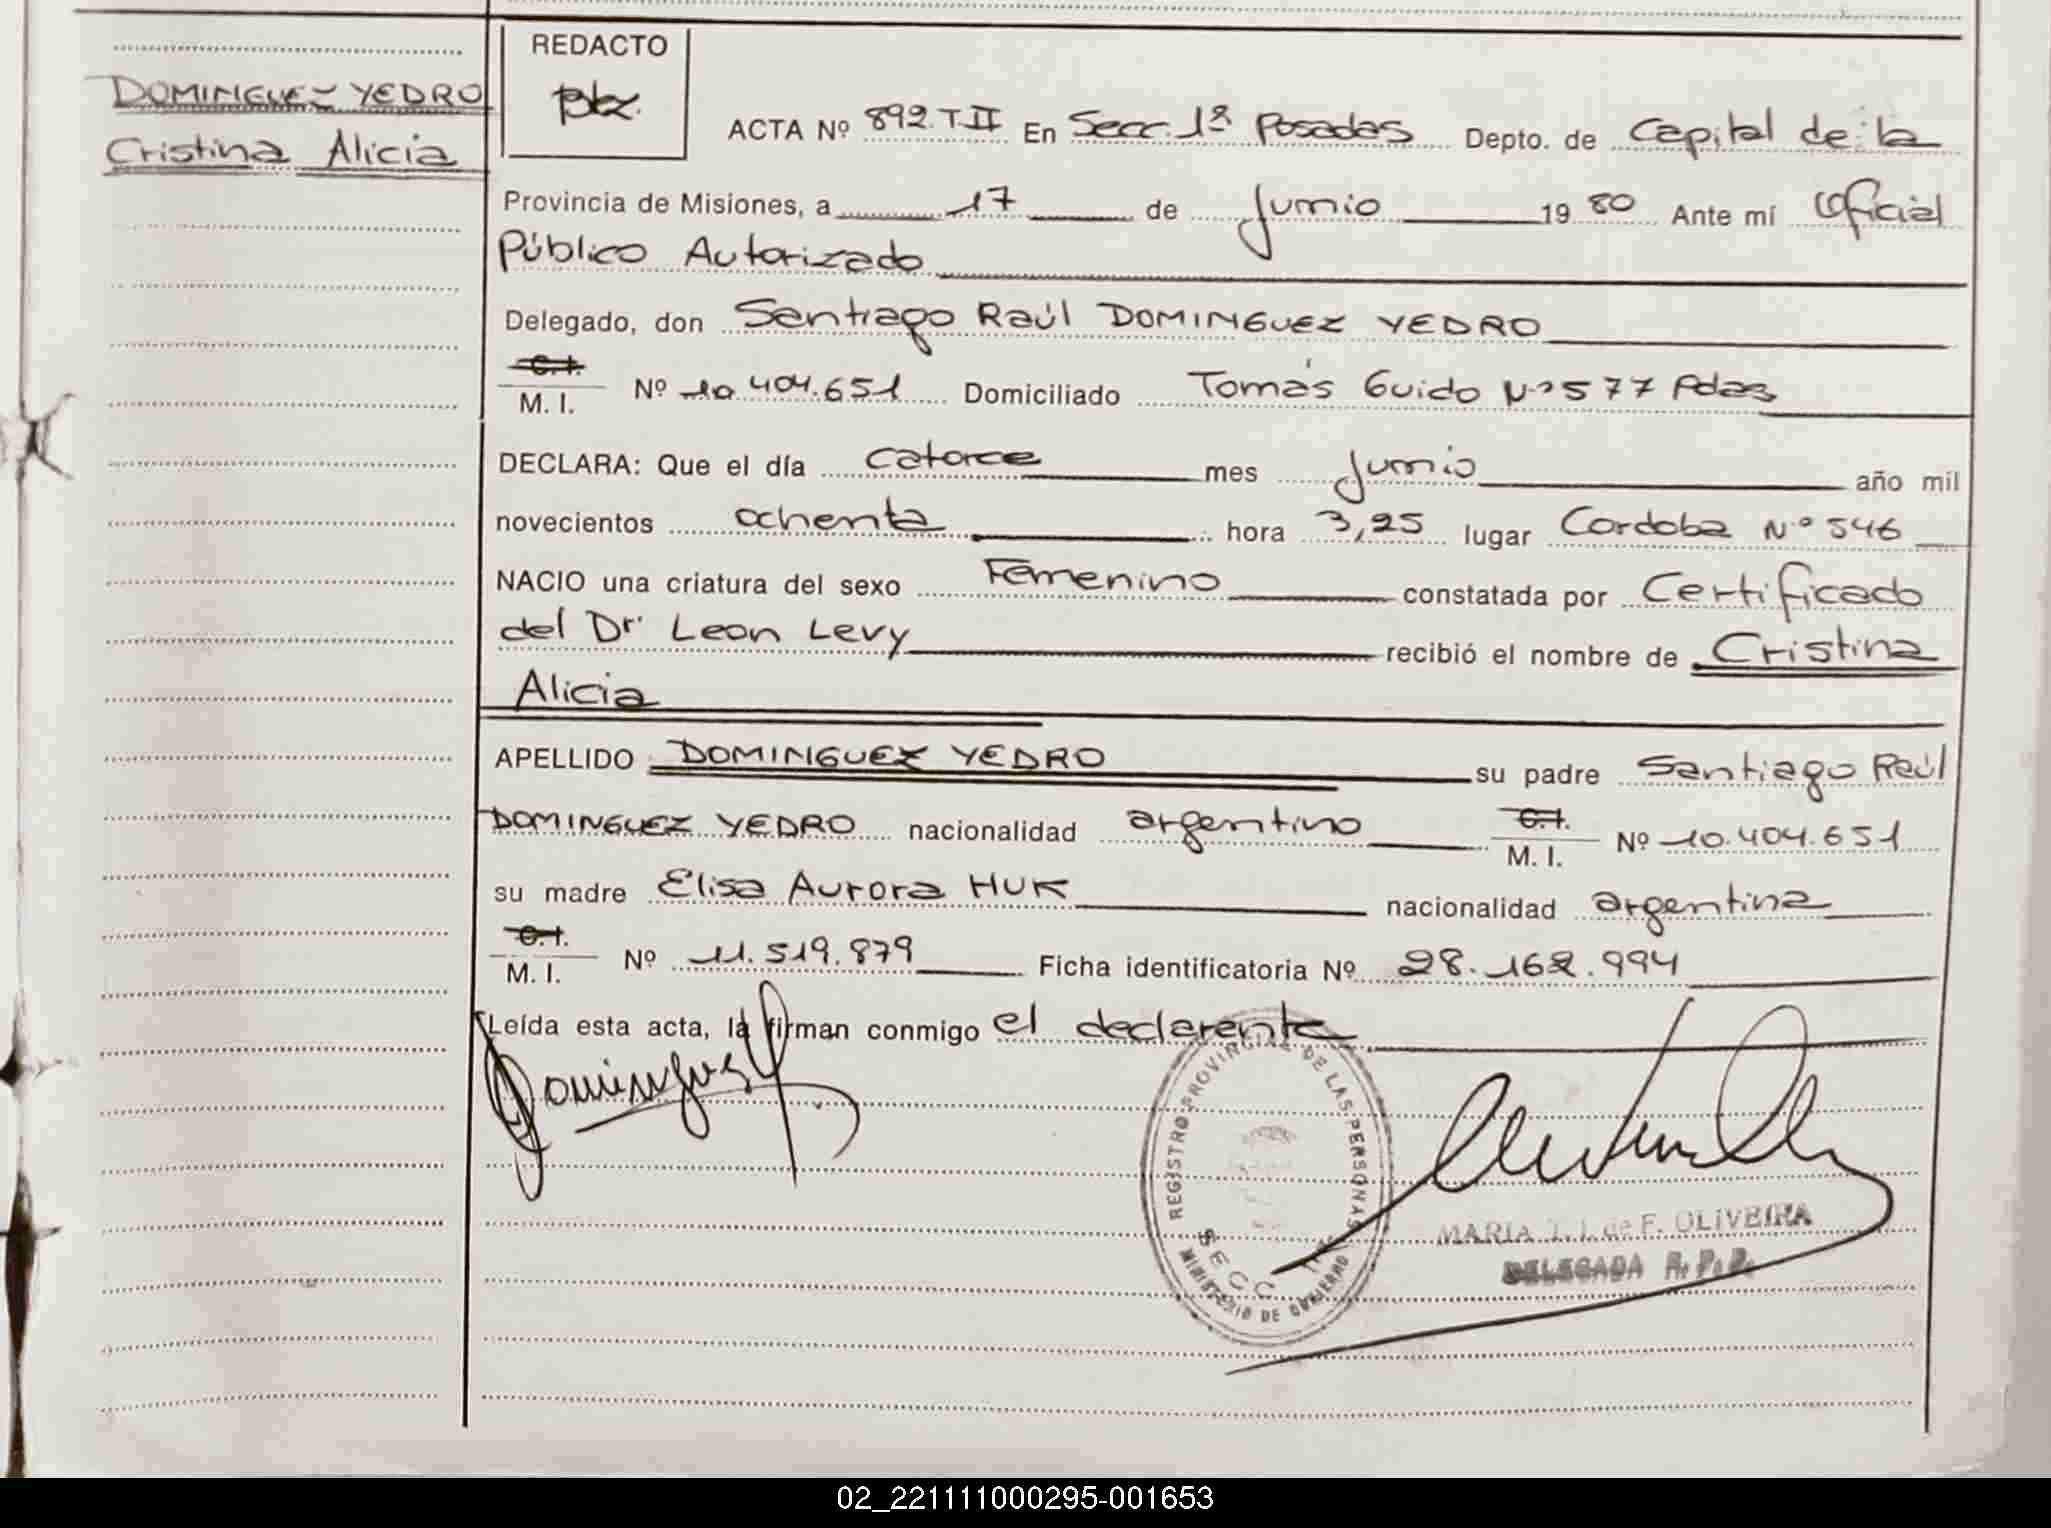 DOMINGUEZ YEDRO
Cristina Alicia
REDACTO
ACTA Nº 892.T II En Secc. 1ª Posadas Depto. de Capital de la
Provincia de Misiones, a 17 de Junio 19 80 Ante mí Oficial
Público Autorizado
Delegado, don Santiago Raúl DOMINGUEZ YEDRO
C.I.
M. I. Nº 10.404.651 Domiciliado Tomás Guido Nº 577 Pdas
DECLARA: Que el día catorce mes Junio año mil
novecientos ochenta hora 3,25 lugar Cordoba Nº 546
NACIO una criatura del sexo Femenino constatada por Certificado
del Dr Leon Levy recibió el nombre de Cristina
Alicia
APELLIDO DOMINGUEZ YEDRO su padre Santiago Raúl
DOMINGUEZ YEDRO nacionalidad argentino C.I. M. I. Nº 10.404.651
su madre Elisa Aurora HUK nacionalidad argentina
C.I.
M. I. Nº 11.519.879 Ficha identificatoria Nº 28.162.994
Leída esta acta, la firman conmigo el declarante
Dominguez
REGISTRO PROVINCIAL DE LAS PERSONAS
SECC 1ª
MINISTERIO DE GOBIERNO
MARIA de F. OLIVEIRA
DELEGADA R. P. P.
02_221111000295-001653